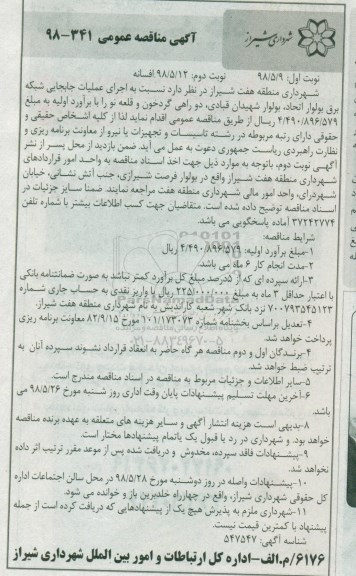 شهرداری شیراز
آگهی مناقصه عمومی ۳۴۱-۹۸
نوبت اول: ۹۸/۵/۹ نوبت دوم: ۹۸/۵/۱۲ افسانه
شهرداری منطقه هفت شیراز در نظر دارد نسبت به اجرای عملیات جابجایی شبکه
برق بولوار اتحاد، بولوار شهیدان قبادی، دو راهی گردخون و قلعه نو را با برآورد اولیه به مبلغ
۴/۴۹۰/۸۹۶/۵۷۹ ریال از طریق مناقصه عمومی اقدام نماید لذا از کلیه اشخاص حقیقی و
حقوقی دارای رتبه مربوطه در رشته تاسیسات و تجهیزات یا نیرو از معاونت برنامه ریزی و
نظارت راهبردی ریاست جمهوری دعوت به عمل می آید. ضمن بازدید از محل پسر از نشر
آگهی نوبت دوم، باتوجه به موارد ذیل جهت اخذ اسناد مناقصه به واحد امور قراردادهای
شهرداری منطقه هفت شیراز واقع در بولوار فرصت شیرازی، جنب آتش نشانی، خیابان
شهرداری، واحد امور مالی شهرداری منطقه هفت مراجعه نمایند. ضمنا سایر جزئیات در
اسناد مناقصه توضیح داده شده است. متقاضیان جهت کسب اطلاعات بیشتر با شماره تلفن
۳۷۲۴۲۷۷۴ آماده پاسخگویی می باشد.
شرایط مناقصه:
۱-مبلغ برآورد اولیه: ۴/۴۹۰/۸۹۶/۵۷۹ ریال
۲-مدت انجام کار ۶ ماه می باشد.
۳-ارائه سپرده ای که از ۵درصد مبلغ کل برآورد کمتر نباشد به صورت ضمانتنامه بانکی
با اعتبار حداقل ۳ ماه به مبلغ ۲۲۵/۰۰۰/۰۰۰ ریال یا واریز نقدی به حساب جاری شماره
۷۰۰۷۹۳۵۴۵۱۲۳ نزد بانک شهر شعبه کاراندیش به نام شهرداری منطقه هفت شیراز.
۴-تعدیل براساس بخشنامه شماره ۱۰۱/۱۷۳۰۷۳ مورخ ۸۲/۹/۱۵ معاونت برنامه ریزی
پرداخت خواهد شد.
۴-برندگان اول و دوم مناقصه هر گاه حاضر به انعقاد قرارداد نشوند سپرده آنان به
ترتیب ضبط خواهد شد.
۵-سایر اطلاعات و جزئیات مربوط به مناقصه در اسناد مناقصه مندرج است.
۶-آخرین مهلت تسلیم پیشنهادات پایان وقت اداری روز شنبه مورخ ۹۸/۵/۲۶ می
باشد.
۸-بدیهی است هزینه انتشار آگهی و سایر هزینه های متعلقه به عهده برنده مناقصه
خواهد بود. و شهرداری در رد یا قبول یک یاتمام پیشنهادها مختار است.
۹-پیشنهادات فاقد سپرده، مخدوش و دریافت شده پس از موعد مقرر ترتیب اثر داده
نخواهد شد.
۱۰-پیشنهادات واصله در روز دوشنبه مورخ ۹۸/۵/۲۸ در محل سالن اجتماعات اداره
کل حقوقی شهرداری شیراز، واقع در چهارراه خلدبرین باز و خوانده می شود.
۱۱-شهرداری ملزم به پذیرش هیچ یک از پیشنهادهایی که دریافت کرده است از جمله
پیشنهاد با کمترین قیمت نیست.
شناسه آگهی: ۵۴۷۵۴۷
۶۱۷۶/م.الف-اداره کل ارتباطات و امور بین الملل شهرداری شیراز